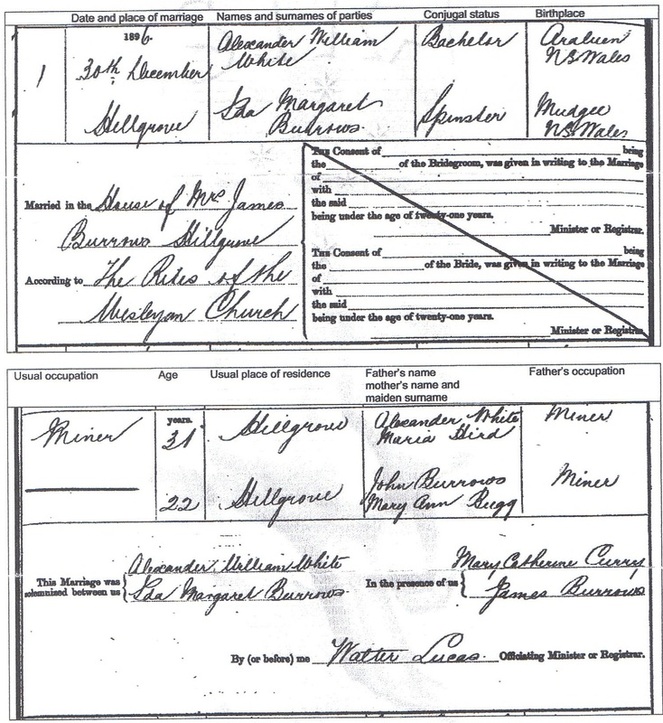 Date and place of marriage Names and surnames of parties Conjugal status Birthplace
1896. Alexander William Bachelor Araluen
1 30th December White NS Wales
Hillgrove Ida Margaret Spinster Mudgee
Burrows. NS Wales
The Consent of being
the of the Bridegroom, was given in writing to the Marriage
of
with
the said
being under the age of twenty-one years.
Minister or Registrar.
Married in the House of Mrs James
Burrows Hillgrove
According to The Rites of the
Wesleyan Church
The Consent of being
the of the Bride, was given in writing to the Marriage
of
with
the said
being under the age of twenty-one years.
Minister or Registrar.
Usual occupation Age Usual place of residence Father's name Father's occupation
mother's name and
maiden surname
years.
Miner 31 Hillgrove Alexander White Miner
Maria Hird
22 Hillgrove John Burrows Miner
Mary Ann Bugg
This Marriage was Alexander William White In the presence of us Mary Catherine Curry
solemnized between us Ida Margaret Burrows. James Burrows
By (or before) me Walter Lucas. Officiating Minister or Registrar.